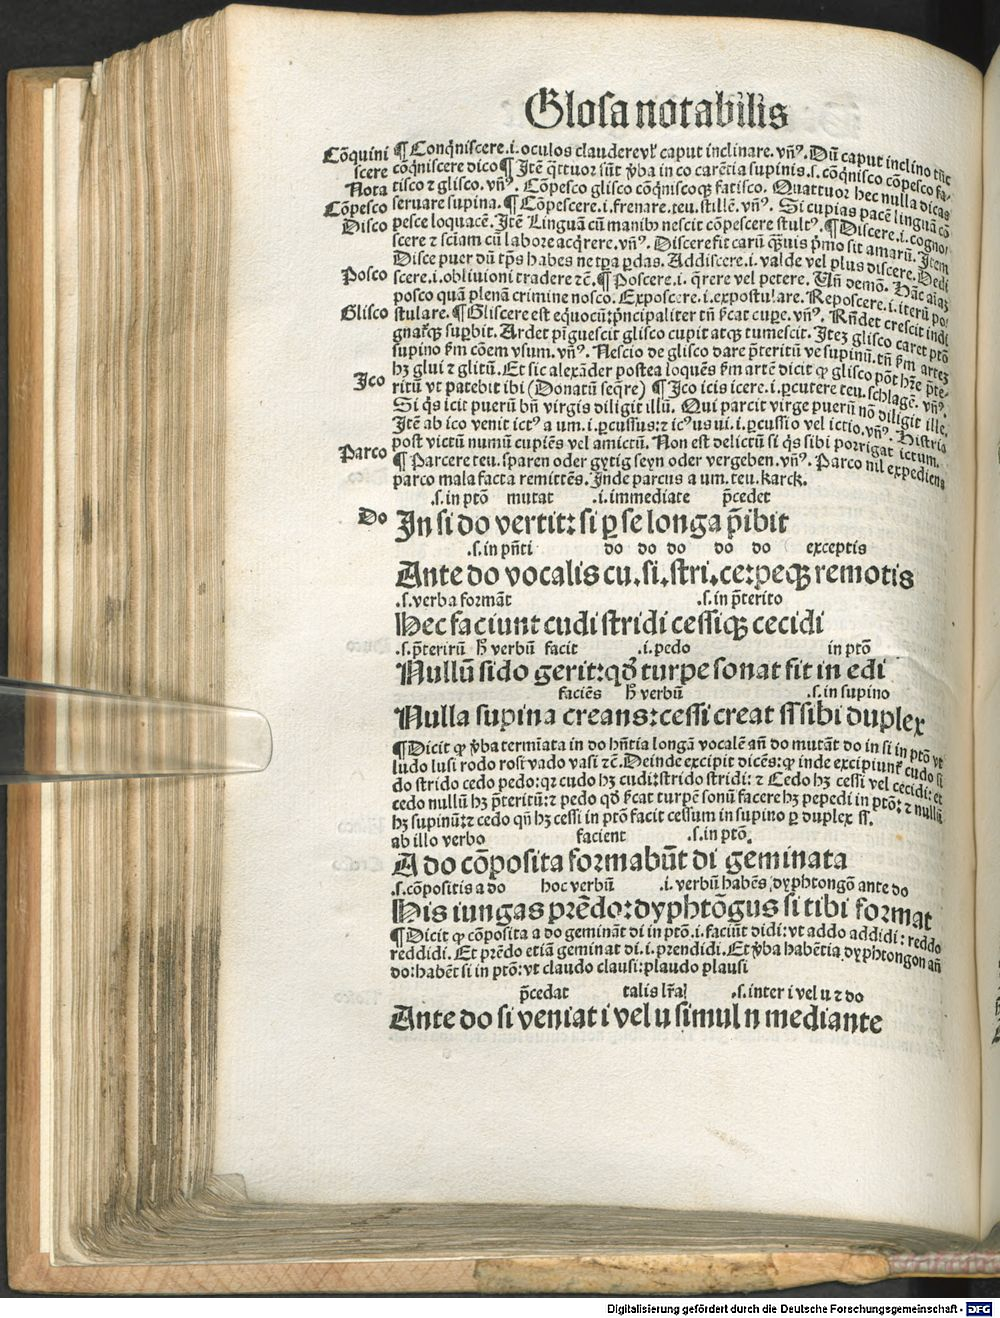 Glosa notabilis
Cõquini
scere
Nota
Cõpesco
Disco
Posco
Glisco
Jco
Parco
Do
¶ Conq̃niscere .i. oculos claudere vel caput inclinare. vñꝰ. Dũ caput inclino tũc
cõq̃niscere dico ¶ Itẽ q̃ttuor sũt ꝟba in co carẽtia supinis .s. cõq̃nisco cõpesco fa-
tisco ⁊ glisco. vñꝰ. Cõpesco glisco cõq̃niscoqꝫ fatisco. Quattuor hec nulla dicas
seruare supina. ¶ Cõpescere .i. frenare. teu. stillẽ. vñꝰ. Si cupias pacẽ linguã cõ
pesce loquacẽ. Itẽ Linguã cũ manibꝫ nescit cõpescere stultꝰ. ¶ Discere .i. cognos
scere ⁊ sciam cũ labore acq̃rere. vñꝰ. Discere fit carũ q̃ꝫuis p̃mo sit amarũ. Item
Disce puer dũ tp̃s habes ne tpa ꝑdas. Addiscere .i. valde vel plus discere. Dedi
scere .i. obliuioni tradere ⁊c̃. ¶ Poscere .i. q̃rere vel petere. Uñ demõ. Hãc aĩaꝫ
posco quã plenã crimine nosco. Exposcere .i. expostulare. Reposcere .i. iterũ po
stulare. ¶ Gliscere est equocũ: p̃ncipaliter tñ ẜcat cupe. vñꝰ. Rñdet crescit indi
gnat̃qꝫ supbit. Ardet pĩguescit glisco cupit atqꝫ tumescit. Iteꝫ glisco caret ptõ
supino ẜm cõem vsum. vñꝰ. Nescio de glisco dare p̃teritũ ve supinũ. tñ ẜm artẽ
hꝫ glui ⁊ glitũ. Et sic alexãder postea loquẽs ẜm artẽ dicit ꝙ glisco põt hr̃e p̃te-
ritũ vt patebit ibi (Donatũ seq̃re) ¶ Jco icis icere .i. ꝑcutere teu. schlagẽ. vñꝰ.
Si q̃s icit puerũ bñ virgis diligit illũ. Qui parcit virge puerũ nõ diligit ille.
Itẽ ab ico venit ictꝰ a um .i. ꝑcussus: ⁊ icꝰus ui .i. ꝑcussio vel ictio. vñꝰ. Histrio
post victũ numũ cupiẽs vel amictũ. Non est delictũ si q̃s sibi porrigat ictum.
¶ Parcere teu. sparen oder gytig seyn oder vergeben. vñꝰ. Parco nil expediens
parco mala facta remittẽs. Inde parcus a um. teu. karck.
.s. in ptõ mutat .i. immediate p̃cedet
In si do vertit: si ꝑ se longa p̃ibit
.s. in pñti do do do do do exceptis
Ante do vocalis cu. si. stri. ce: peqꝫ remotis
.s. verba formãt .s. in p̃terito
Hec faciunt cudi stridi cessiqꝫ cecidi
.s. p̃teritũ hͦ verbũ facit .i. pedo in ptõ
Nullũ sido gerit: qđ turpe sonat fit in edi
faciẽs hͦ verbũ .s. in supino
Nulla supina creans: cessi creat ss sibi duplex
¶ Dicit ꝙ ꝟba terminata in do hñtia longã vocalẽ añ do mutãt do in si in ptõ vt
ludo lusi rodo rosi vado vasi ⁊c̃. Deinde excipit dicẽs: ꝙ inde excipiunt̃ cudo si
do strido cedo pedo: qꝛ cudo hꝫ cudi: strido stridi: ⁊ Cedo hꝫ cessi vel cecidi: et
cedo nullũ hꝫ p̃teritũ: ⁊ pedo qđ ẜcat turpẽ sonũ facere hꝫ pepedi in ptõ: ⁊ nullũ
hꝫ supinũ: ⁊ cedo qñ hꝫ cessi in ptõ facit cessum in supino ꝑ duplex ss.
ab illo verbo facient .s. in ptõ.
A do cõposita formabũt di geminata
.s. cõpositis a do hoc verbũ .i. verbũ habẽs dyphtongõ ante do
His iungas prẽdo: dyphtõgus si tibi format
¶ Dicit ꝙ cõposita a do geminãt di in ptõ .i. faciũt didi: vt addo addidi: reddo
reddidi. Et prẽdo etiã geminat di .i. prendidi. Et ꝟba habẽtia dyphtongon añ
do: habẽt si in ptõ: vt claudo clausi: plaudo plausi
p̃cedat talis lr̃a .s. inter i vel u ⁊ do
Ante do si veniat i vel u simul n mediante
Digitalisierung gefördert durch die Deutsche Forschungsgemeinschaft - DFG